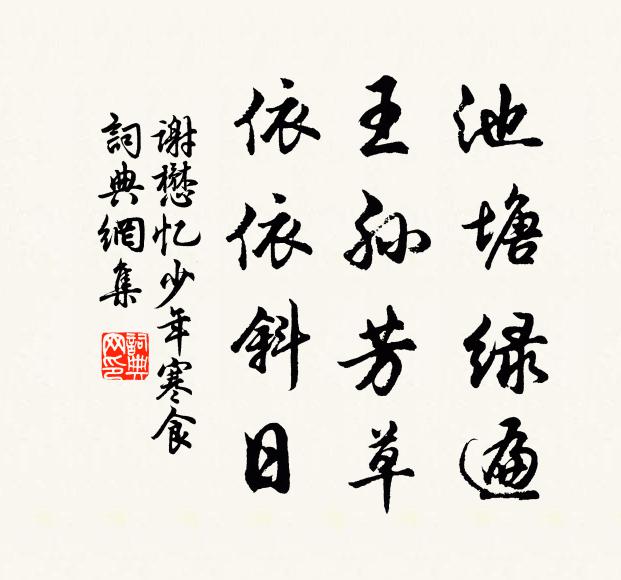 池塘绿遍
王孙芳草
依依斜日
谢懋忆少年寒食
詞典網集
詞典网印